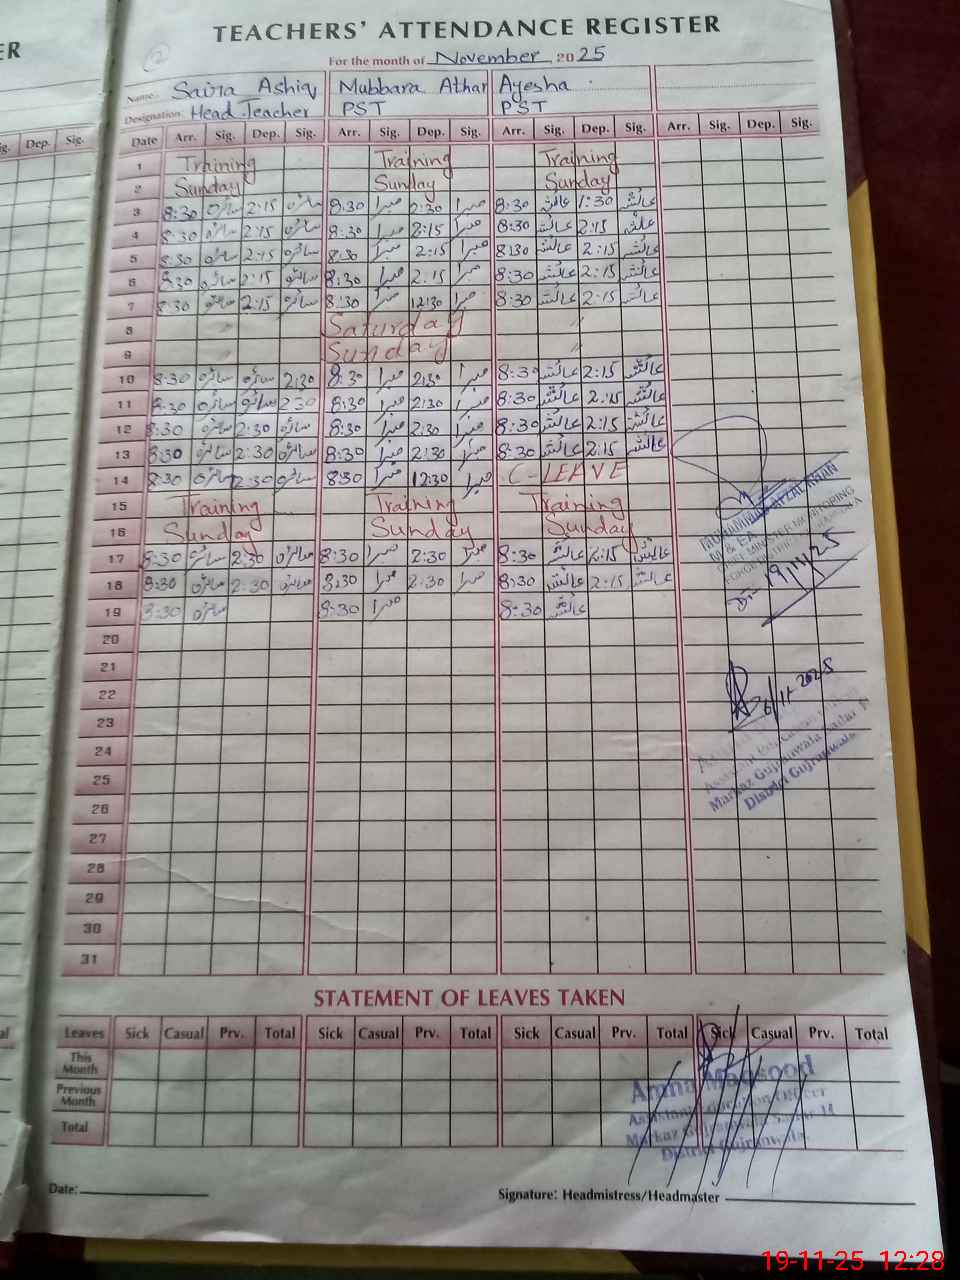 ER
TEACHERS' ATTENDANCE REGISTER
For the month of November 2025
Name: Saira Ashiq Mubbara Athar Ayesha
Designation: Head Teacher PST PST
Sig. Dep. Sig. Date Arr. Sig. Dep. Sig. Arr. Sig. Dep. Sig. Arr. Sig. Dep. Sig. Arr. Sig. Dep. Sig.
1 Training Training Training
2 Sunday Sunday Sunday
3 8:30 سائرہ 2:15 سائرہ 8:30 مبرا 2:30 مبرا 8:30 عائشہ 1:30 عائشہ
4 8:30 سائرہ 2:15 سائرہ 8:30 مبرا 2:15 مبرا 8:30 عائشہ 2:15 عائشہ
5 8:30 سائرہ 2:15 سائرہ 8:30 مبرا 2:15 مبرا 8:30 عائشہ 2:15 عائشہ
6 8:30 سائرہ 2:15 سائرہ 8:30 مبرا 2:15 مبرا 8:30 عائشہ 2:15 عائشہ
7 8:30 سائرہ 2:15 سائرہ 8:30 مبرا 12:30 مبرا 8:30 عائشہ 2:15 عائشہ
8 " Saturday "
9 " Sunday "
10 8:30 سائرہ سائرہ 2:30 8:30 مبرا 2:30 مبرا 8:30 عائشہ 2:15 عائشہ
11 8:30 سائرہ سائرہ 2:30 8:30 مبرا 2:30 مبرا 8:30 عائشہ 2:15 عائشہ
12 8:30 سائرہ 2:30 سائرہ 8:30 مبرا 2:30 مبرا 8:30 عائشہ 2:15 عائشہ
13 8:30 سائرہ 2:30 سائرہ 8:30 مبرا 2:30 مبرا 8:30 عائشہ 2:15 عائشہ
14 8:30 سائرہ 2:30 سائرہ 8:30 مبرا 12:30 مبرا C-LEAVE
15 Training Training Training
16 Sunday Sunday Sunday
17 8:30 سائرہ 2:30 سائرہ 8:30 مبرا 2:30 مبرا 8:30 عائشہ 2:15 عائشہ
18 8:30 سائرہ 2:30 سائرہ 8:30 مبرا 2:30 مبرا 8:30 عائشہ 2:15 عائشہ
19 8:30 سائرہ 8:30 مبرا 8:30 عائشہ
MUHAMMAD AFZAL
M & EA
CHIEF MINISTER MONITORING
FORCE
19/11/25
20
21
22
6/11-2025
23
24
Markaz Gujranwala Sadar
District Gujranwala
25
26
27
28
29
30
31
STATEMENT OF LEAVES TAKEN
Leaves Sick Casual Prv. Total Sick Casual Prv. Total Sick Casual Prv. Total Sick Casual Prv. Total
This Month
Previous Month
Total
Amna Maqsood
Assistant Education Officer
Markaz Gujranwala Sadar
District Gujranwala
Date:
Signature: Headmistress/Headmaster
19-11-25 12:28